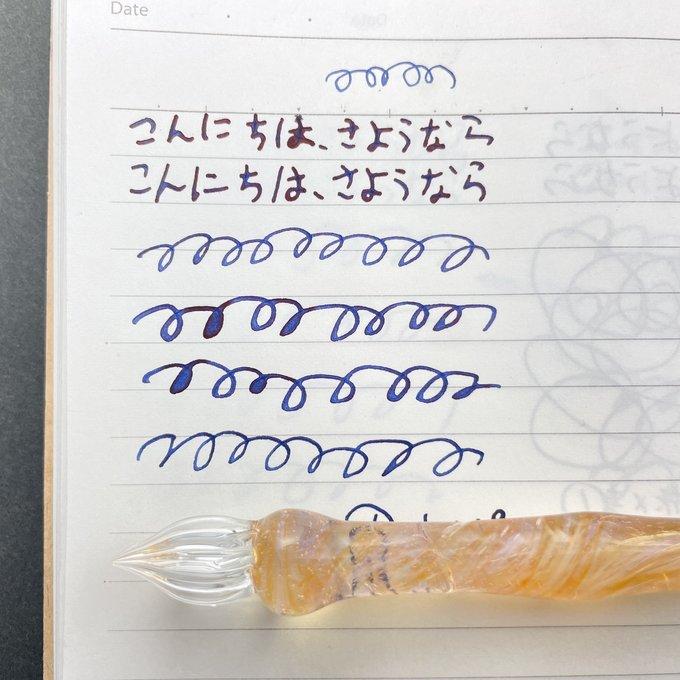 Date
こんにちは、さようなら
こんにちは、さようなら